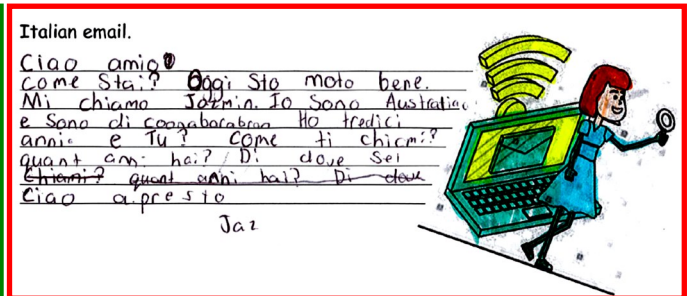 Italian email.
Ciao amico
come stai? Oggi sto moto bene.
Mi chiamo Jazmin. Io sono Australiac
e sono di coogaborabran Ho tredici
anni. e Tu? come ti chicmi?
quant anni hai? Di dove sei
Chiami? quant anni hai? Di dove
Ciao a presto
Jaz